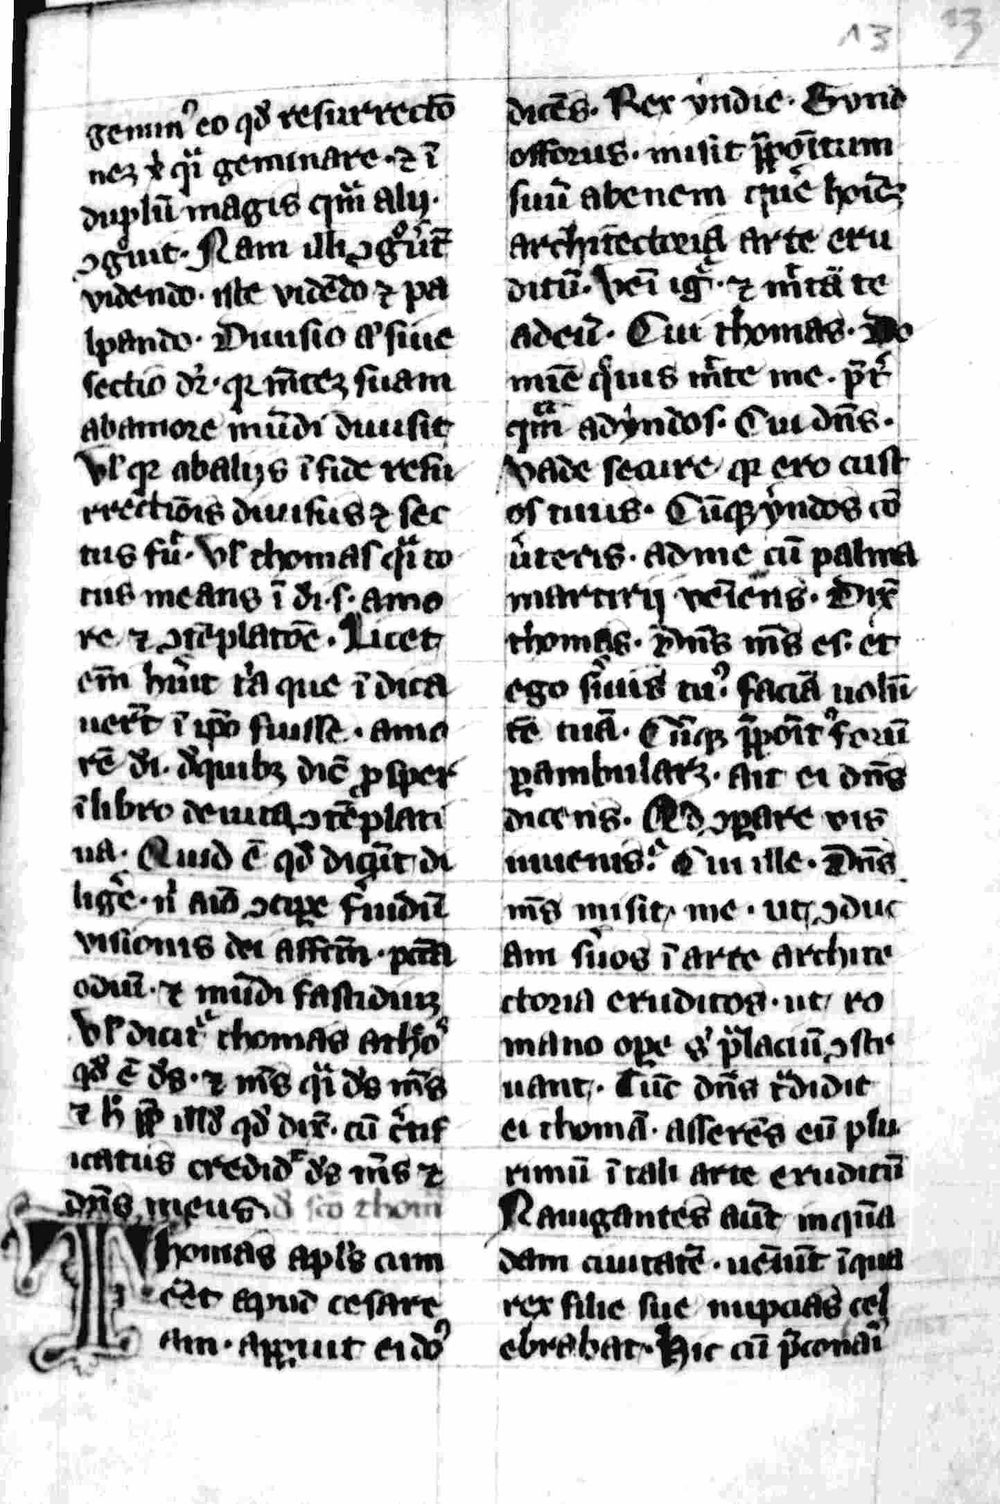 13 13
geminꝰ eo qd̛ resurrectō
neꝫ x̄ qͣi geminare · ⁊ ī
duplū magis qͣm alij ·
ꝯgͦuit · Nam illi ꝯgͦuer̄t
videndo · iste vidēdo ⁊ pa
lpando · Diuisio a͛ siue
sectio dr̛ · qꝛ mēteꝫ suam
ab amore mūdi diuisit
Vl̛ qꝛ ab alijs ī fide resu
rrectiōis diuisus ⁊ sec
tus fū · Vl̛ thomas qͣi to
tus means ī di̛ · s · amo
re ⁊ ꝯtēplatōe · Licet
em̄ hūit tͥa que ī dica
uer̄t ī ipō fuisse · amo
rē di̛ · de quibꝫ dic̄ ꝓsper
ī libro de uita ꝯtēplati
ua · Quid ē qd̛ dicit̄ di
ligͤe · nͥ aīo ꝯciꝑe feruidū
visionis dei affc̄m · pcc̄ā
odiū · ⁊ mūdi fastidiuꝫ
Vl̛ dicit̛ thomas a theoˢ
qd̛ ē ds̄ · ⁊ ms̄ qͣi ds̄ ms̄
⁊ h̛ ꝓp̄ illd̛ qd̛ dix̄ · cū cͤtif
icatus credid᷑ ds̄ ms̄ ⁊
dn̄s meus d̛ scō thom̄
Thomas apl̄s cum
eēt apud cesare
am · apꝑuit ei doꝰ
dicēs · Rex yndie · Gund
offorus · misit p̄poītum
suū abenem que͛ hoīeꝫ
architectoria arte eru
ditū · Veni ig̛ · ⁊ mͥtā te
ad eū · Cui thomas · Do
mīe qͦuis mͥte me · p̄tͥ
qͣm ad yndos · Cui dn̄s ·
Vade secure qꝛ ero cust
os tuus · Cūqꝫ yndos cō
uͥteris · ad me cū palma
martirij vēiens · Dix̄
thomas · dn̄s ms̄ es · et
ego sͥuus tuꝰ · faciā uolū
tē tuā · Cūqꝫ p̄poītꝰ forū
ꝑambularꝫ · ait ei dn̄s
dicens · Qd̛ ꝯꝑare vis
iuuenis · Cui ille · Dn̄s
ms̄ misit me · ut ꝯduc
am sͥuos ī arte archite
ctoria eruditos · ut ro
mano oꝑe sͥ p̄laciū ꝯstr
uant · Tūc dn̄s tͣdidit
ei thomā · asserēs eū plu
rimū ī tali arte eruditū
Nauigantes aūt in quā
dam ciuitatē · uēiūt ī qua
rex filie sue nupcias cel
ebrabat · Hic cū p̄conarͥ